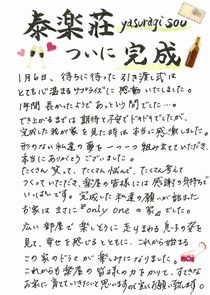 泰楽荘 yasuragi sou
ついに完成
1月6日、待ちに待った引き渡し式は
とても心温まるサプライズに感動いたしました。
1年間 長かったようであっという間でした…。
でき上がるまでは期待と不安でドキドキでしたが、
完成した我が家を見た時は本当に感激しました。
形のない私達の夢を一つ一つ組み立てていただき、
本当にありがとうございました。
たくさん笑って、たくさん悩んで、たくさん考えて
つくっていただき、泰楽の皆様には感謝の気持ちで
いっぱいです。完成した私達の願いが詰まった
お家はまさに『only oneの家』でした。
広い部屋で楽しそうに走りまわる息子の姿を
見て、幸せを感じるとともに、これから始まる
この家のドラマが楽しみになりました。
これからも泰楽の皆様の力をかりて、すてきな
お家に育てていきたいと思いますので宜しくお願い致します。